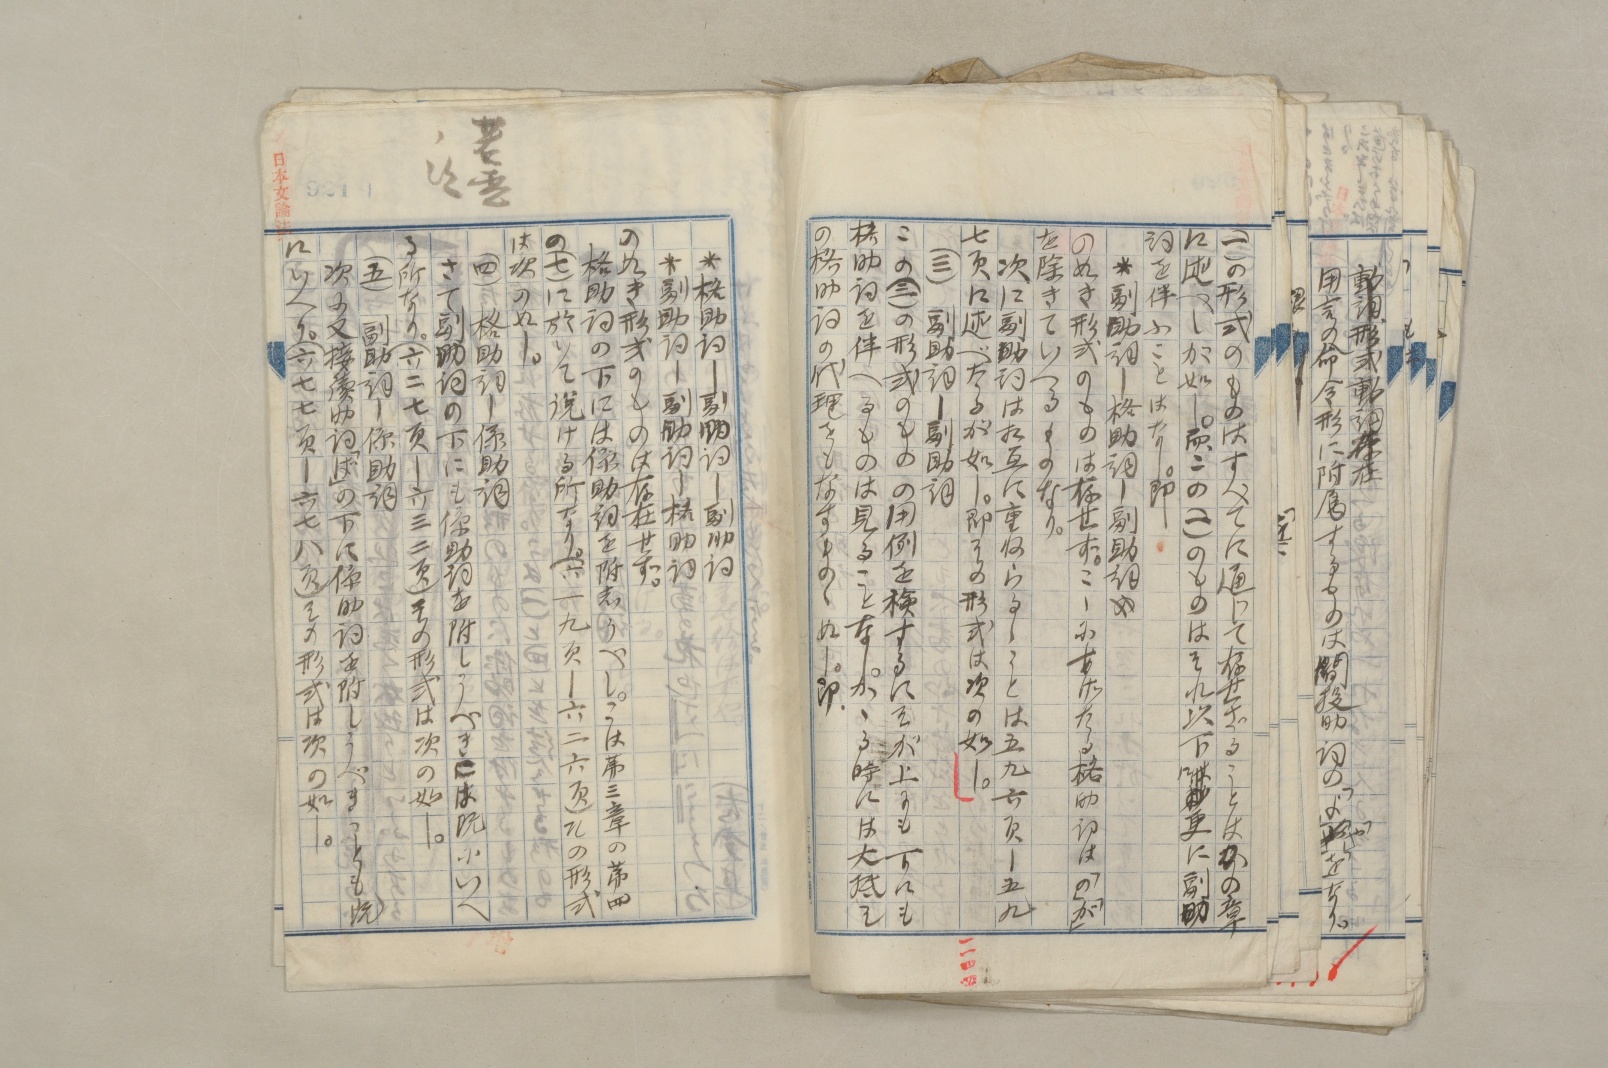 動詞、形式動詞存在
用言の命令形に附属するものは間投助詞の「よ」「や」をなり。
(一)の形式のものはすべてに通じて存せざることはかの章
に述べしが如し。而、この(一)のものはそれ以下に更に副助
詞を伴ふことはなし。即
*副助詞ー格助詞ー副助詞
の如き形式のものは存せず。こゝにあげたる格助詞は「の」「が」
を除きていへるものなり。
次に副助詞は相互に重ねらるゝことは五九六頁ー五九
七頁に述べたるが如し。即その形式は次の如し。
(三) 副助詞ー副助詞
この(三)の形式のものの用例を検するにそが上にも下にも
格助詞を伴へるものは見ることなし。かゝる時には大抵そ
の格助詞の代理をもなすものゝ如し。即、
*格助詞ー副助詞ー副助詞
*副助詞ー副助詞ー格助詞
の如き形式のものは存在せず。
格助詞の下には係助詞を附しうべし。こは第三章の第四
の(七)に於いて説ける所なり。(六一九頁ー六二六頁)その形式
は次の如し。
(四) 格助詞ー係助詞
さて副助詞の下にも係助詞を附しうべきは既にいへ
る所なり。(六二七頁ー六三二頁)その形式は次の如し。
(五) 副助詞ー係助詞
次に又接続助詞「ば」の下に係助詞を附しうべきことも既
にいへり。(六七七頁ー六七八頁)その形式は次の如し。
日本文論法
921
二四四